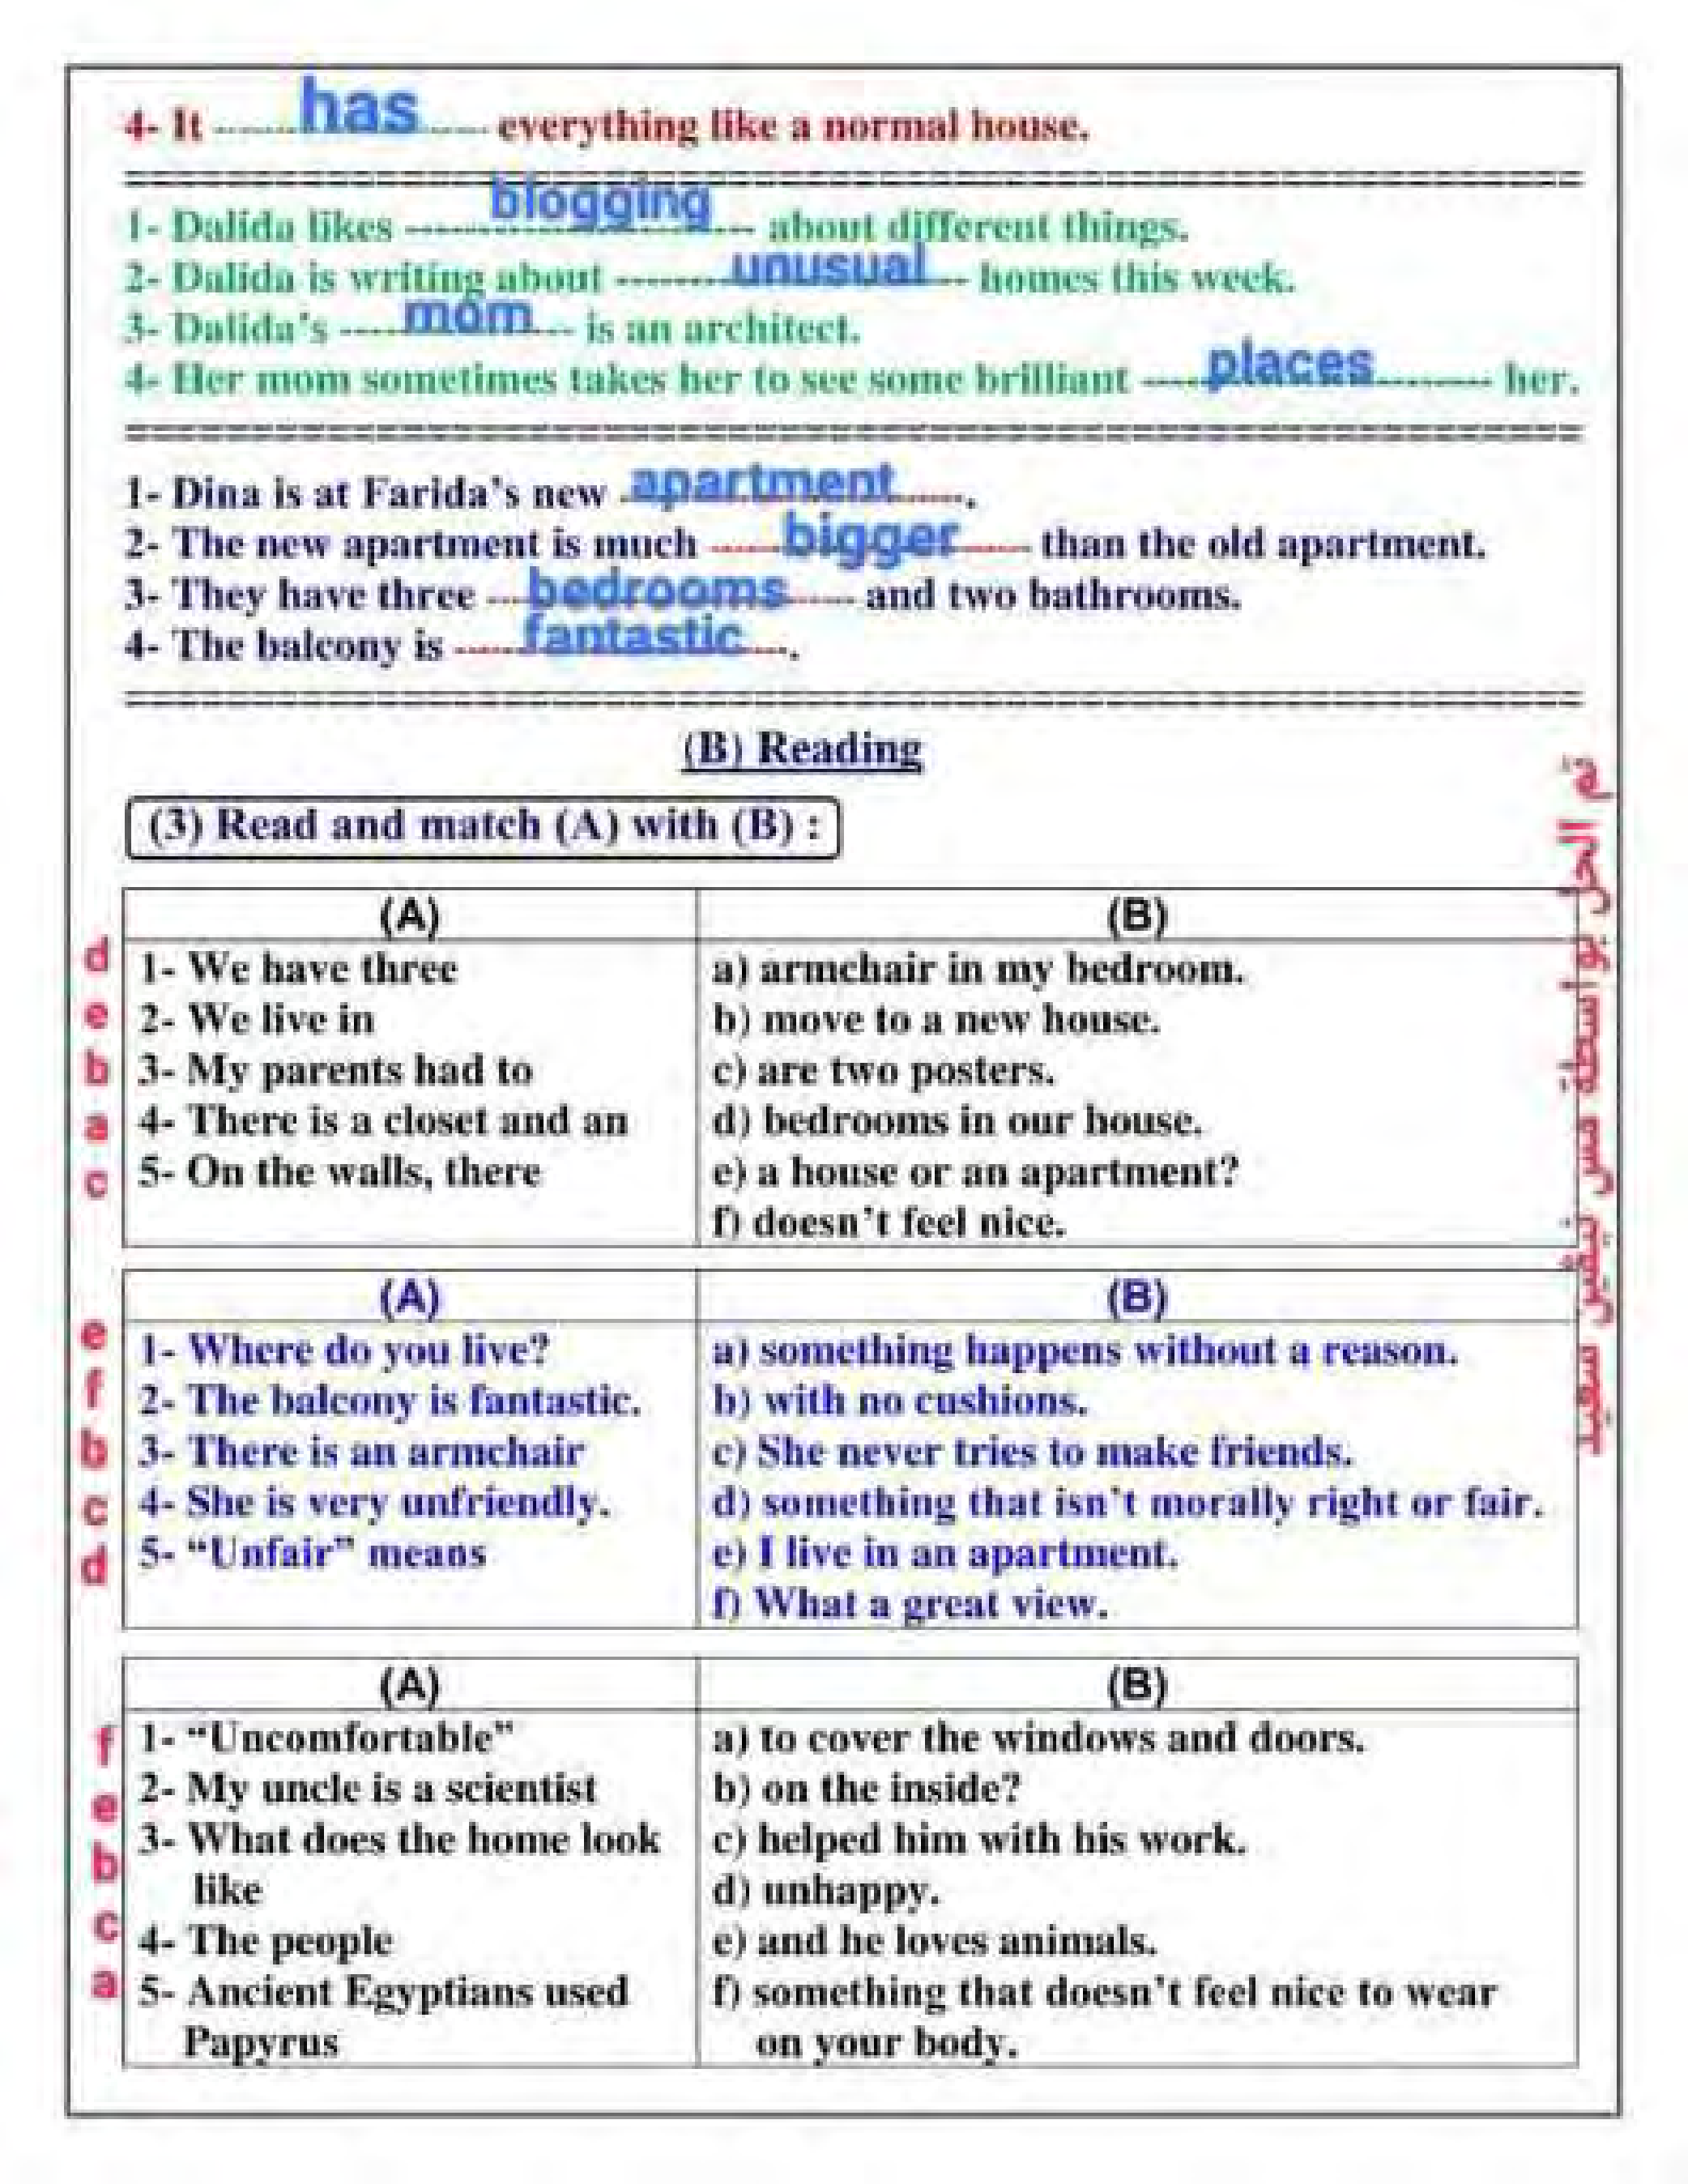 4- It ........ has ........ everything like a normal house.
1- Dalida likes ---------- blogging ---------- about different things.
2- Dalida is writing about -------- unusual -------- homes this week.
3- Dalida's ----- mom ----- is an architect.
4- Her mom sometimes takes her to see some brilliant ----- places ----- her.
1- Dina is at Farida's new ..apartment.......
2- The new apartment is much ......bigger...... than the old apartment.
3- They have three ....bedrooms...... and two bathrooms.
4- The balcony is ......fantastic.....
(B) Reading
(3) Read and match (A) with (B) :
(A) (B)
d 1- We have three a) armchair in my bedroom.
e 2- We live in b) move to a new house.
b 3- My parents had to c) are two posters.
a 4- There is a closet and an d) bedrooms in our house.
c 5- On the walls, there e) a house or an apartment?
f) doesn't feel nice.
(A) (B)
e 1- Where do you live? a) something happens without a reason.
f 2- The balcony is fantastic. b) with no cushions.
b 3- There is an armchair c) She never tries to make friends.
c 4- She is very unfriendly. d) something that isn't morally right or fair.
d 5- “Unfair” means e) I live in an apartment.
f) What a great view.
(A) (B)
f 1- “Uncomfortable” a) to cover the windows and doors.
e 2- My uncle is a scientist b) on the inside?
b 3- What does the home look c) helped him with his work.
like d) unhappy.
c 4- The people e) and he loves animals.
a 5- Ancient Egyptians used f) something that doesn't feel nice to wear
Papyrus on your body.
تم الحل بواسطة مس نيفين سعيد